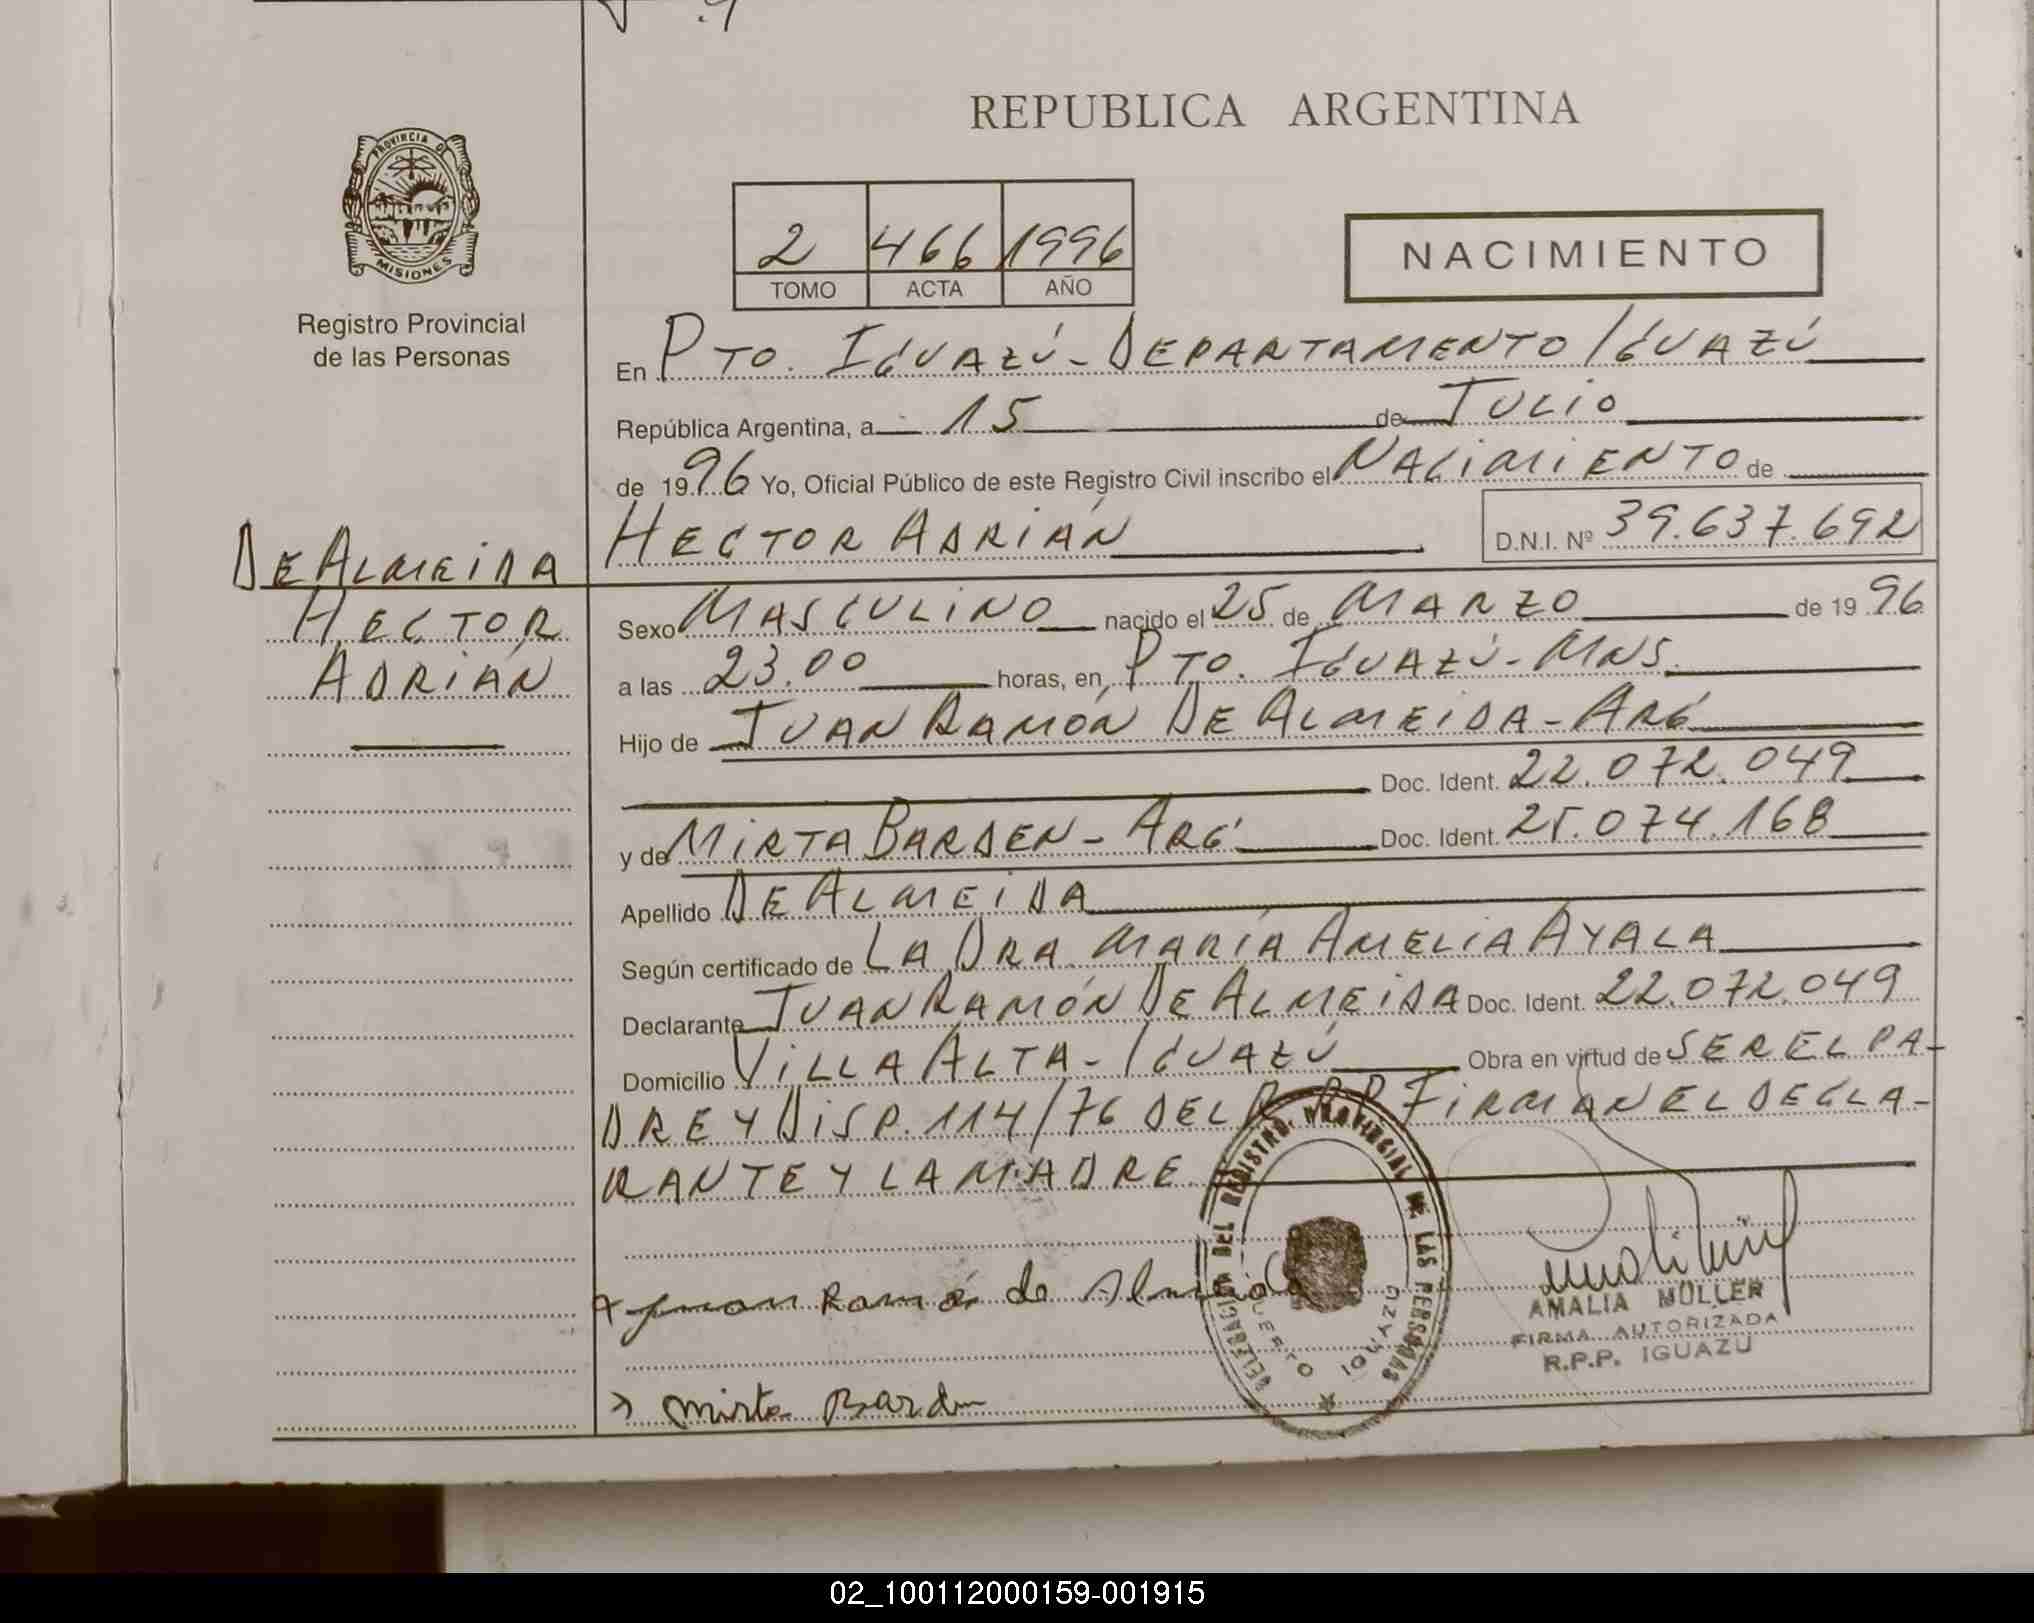 REPUBLICA ARGENTINA
PROVINCIA DE
MISIONES
Registro Provincial
de las Personas
2 466 1996
TOMO ACTA AÑO
NACIMIENTO
En PTO. IGUAZÚ - DEPARTAMENTO IGUAZÚ
República Argentina, a 15 de JULIO
de 1996 Yo, Oficial Público de este Registro Civil inscribo el NACIMIENTO de
HECTOR ADRIÁN D.N.I. Nº 39.637.692
DE ALMEIDA
HECTOR
ADRIÁN
Sexo MASCULINO nacido el 25 de MARZO de 1996
a las 23.00 horas, en PTO. IGUAZÚ - MNS.
Hijo de JUAN RAMÓN DE ALMEIDA - ARG
Doc. Ident. 22.072.049
y de MIRTA BARDEN - ARG Doc. Ident. 25.074.168
Apellido DE ALMEIDA
Según certificado de LA DRA. MARÍA AMELIA AYALA
Declarante JUAN RAMÓN DE ALMEIDA Doc. Ident. 22.072.049
Domicilio VILLA ALTA - IGUAZÚ Obra en virtud de SER EL PA-
DRE Y DISP. 114/76 DEL R.P.P. FIRMAN EL DECLA-
RANTE Y LA MADRE
Juan Ramón de Almeida
Mirta Barden
DELEGACION DEL REGISTRO PROVINCIAL DE LAS PERSONAS
PUERTO IGUAZU
AMALIA MULLER
FIRMA AUTORIZADA
R.P.P. IGUAZU
02_100112000159-001915